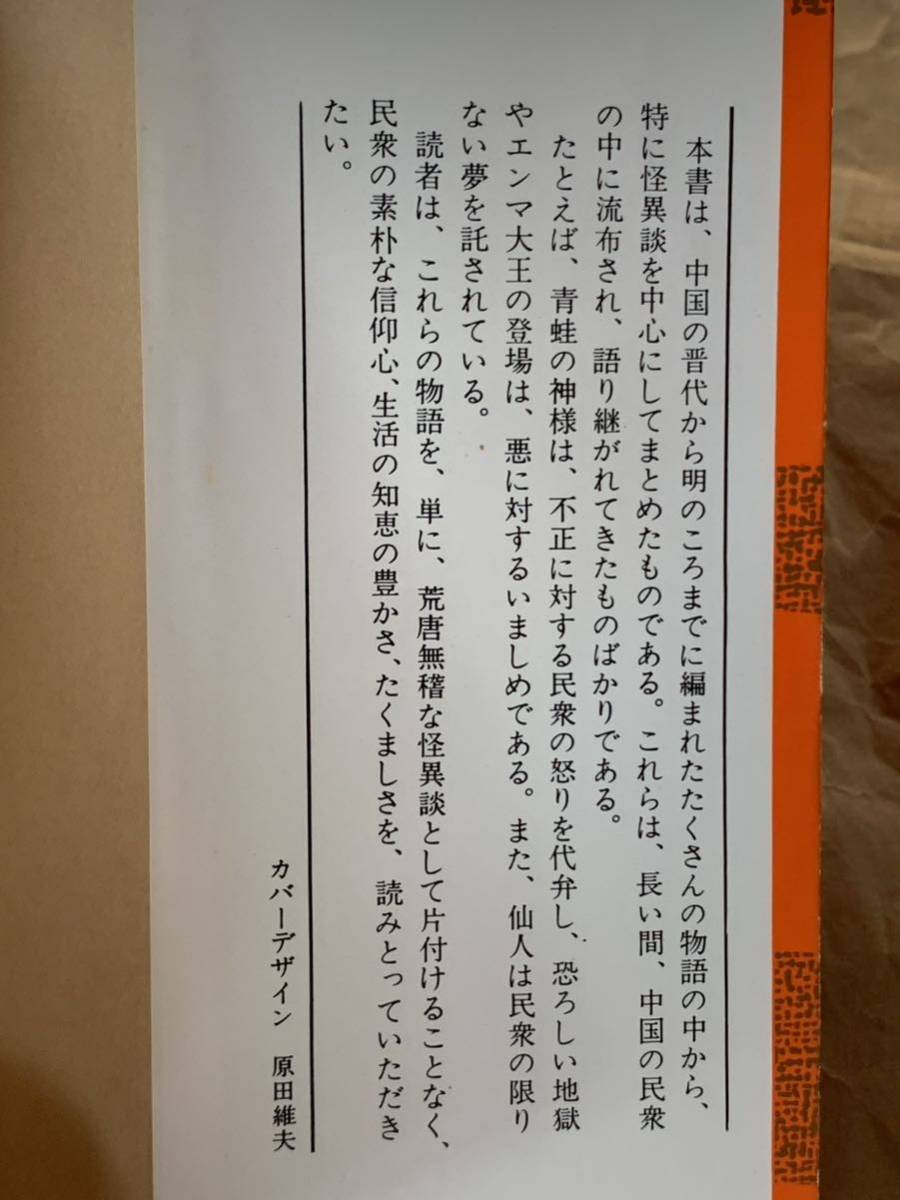 本書は、中国の晋代から明のころまでに編まれたたくさんの物語の中から、
特に怪異談を中心にしてまとめたものである。これらは、長い間、中国の民衆
の中に流布され、語り継がれてきたものばかりである。
たとえば、青蛙の神様は、不正に対する民衆の怒りを代弁し、恐ろしい地獄
やエンマ大王の登場は、悪に対するいましめである。また、仙人は民衆の限り
ない夢を託されている。
読者は、これらの物語を、単に、荒唐無稽な怪異談として片付けることなく、
民衆の素朴な信仰心、生活の知恵の豊かさ、たくましさを、読みとっていただき
たい。
カバーデザイン 原田維夫